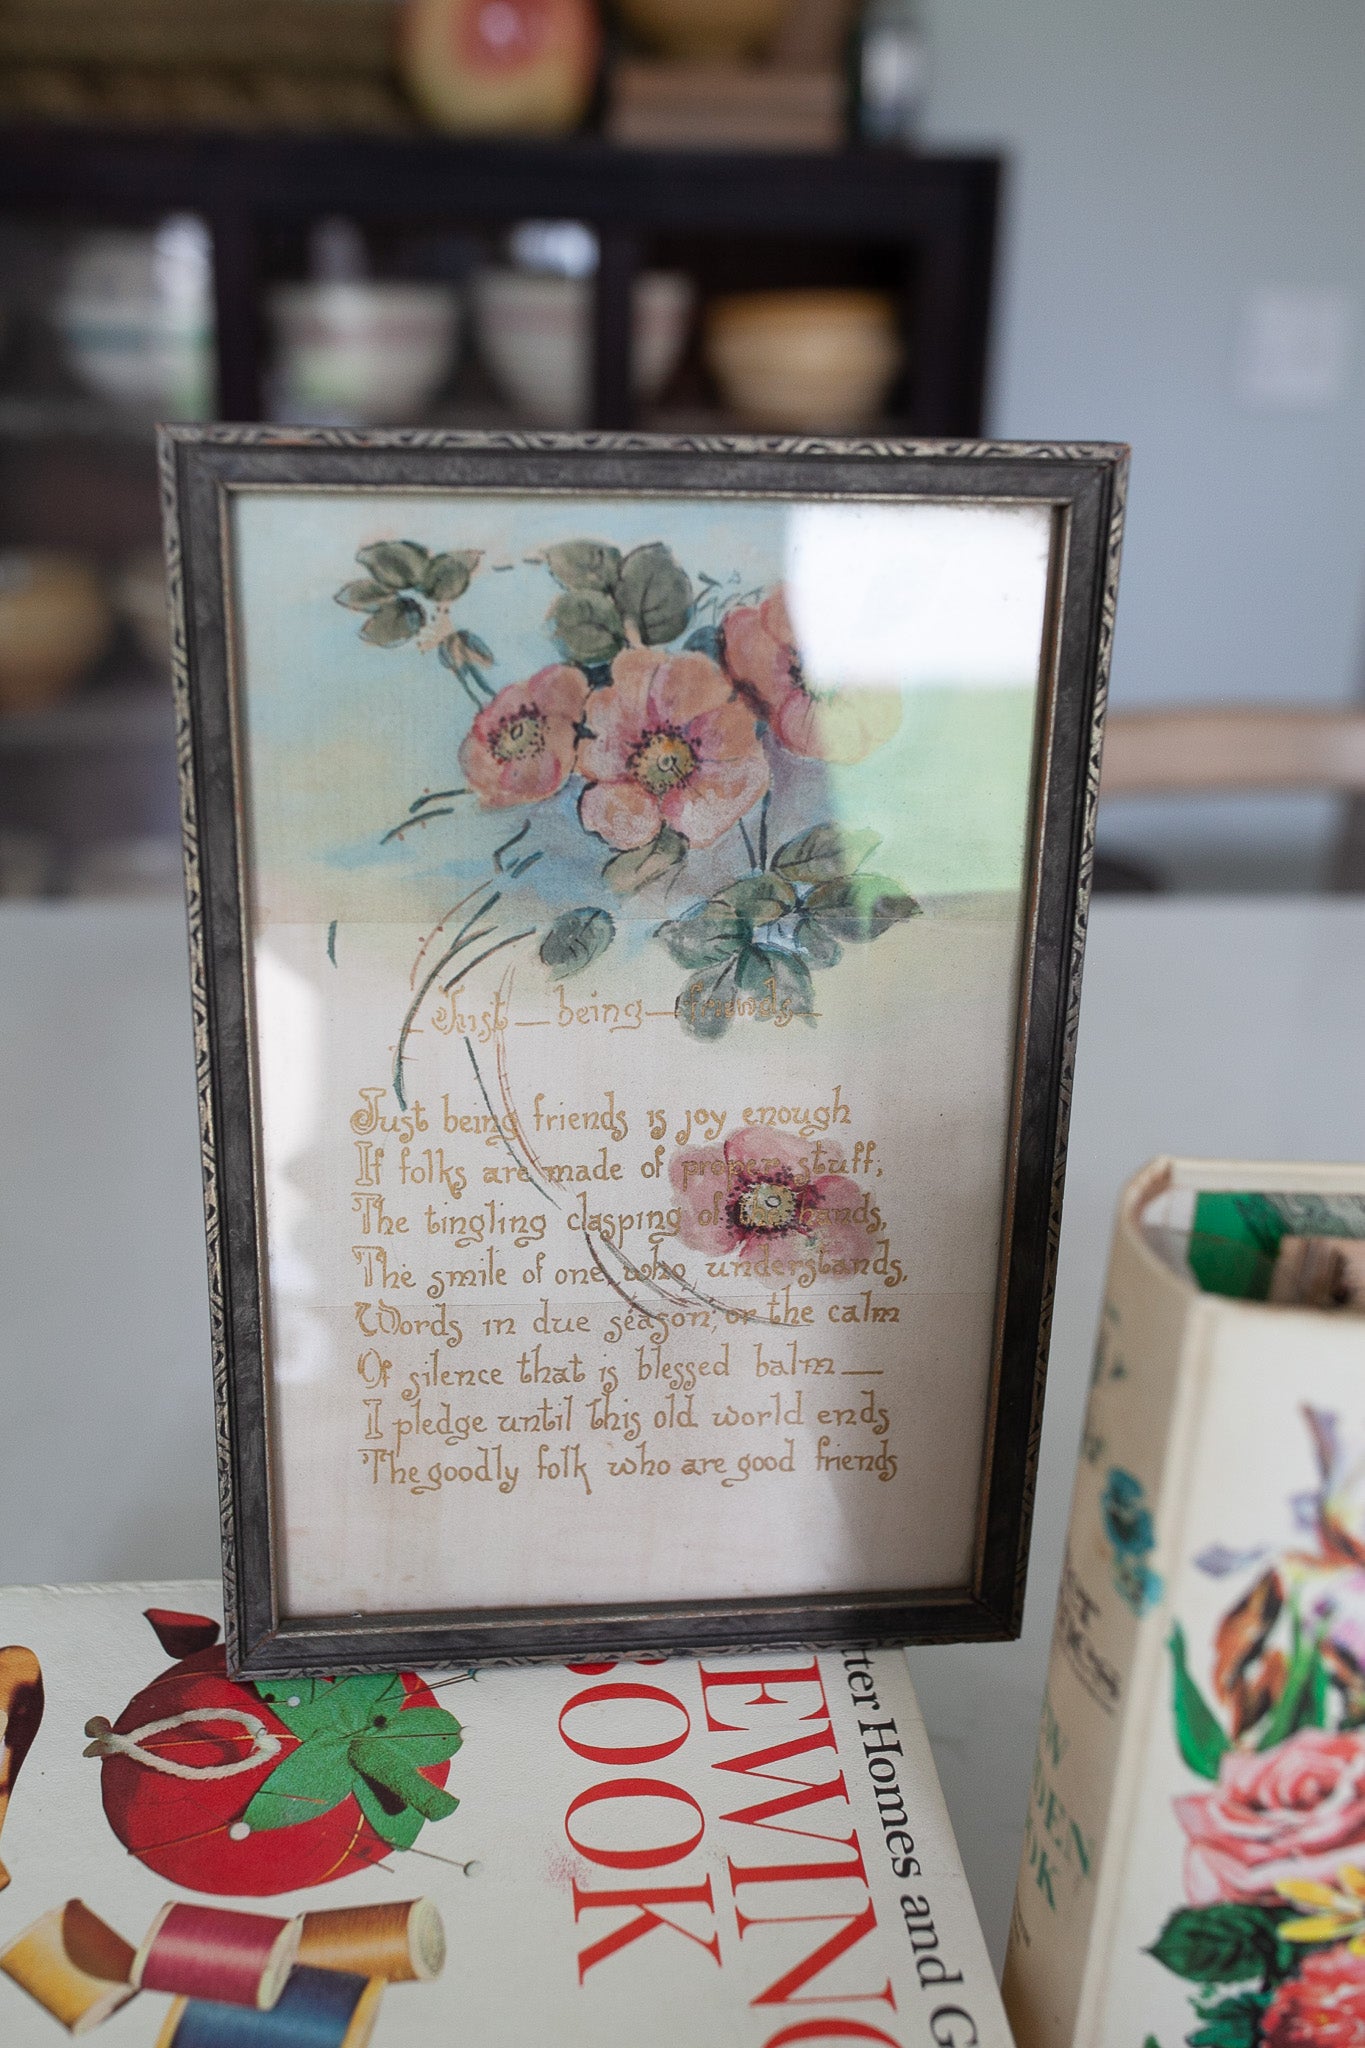 Just — being — friends —
Just being friends is joy enough
If folks are made of proper stuff;
The tingling clasping of the hands,
The smile of one who understands,
Words in due season, or the calm
Of silence that is blessed balm —
I pledge until this old world ends
The goodly folk who are good friends
tter Homes and G
EWING
BOOK